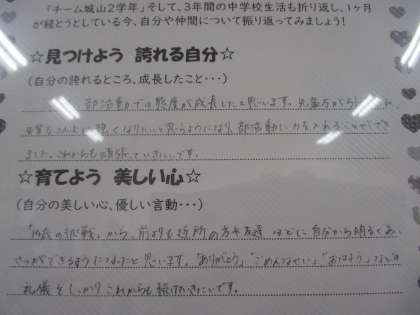 「チーム城山2学年」そして、3年間の中学校生活も折り返し、1ヶ月
が経とうとしている今、自分や仲間について振り返ってみましょう!
☆見つけよう 誇れる自分☆
(自分の誇れるところ、成長したこと…)
部活動での態度が成長したと思います。先輩方が
と思うようになり、部活動に力を入れることができ
ました。これからも頑張っていきたいです。
☆育てよう 美しい心☆
(自分の美しい心、優しい言動…)
の挑戦」から、前よりも近所の方や友達などに自分から明るくあい
さつができるようになったと思います。「ありがとう」「ごめんなさい」「おはよう」などの
礼儀をしっかりこれからも続けていきたいです。